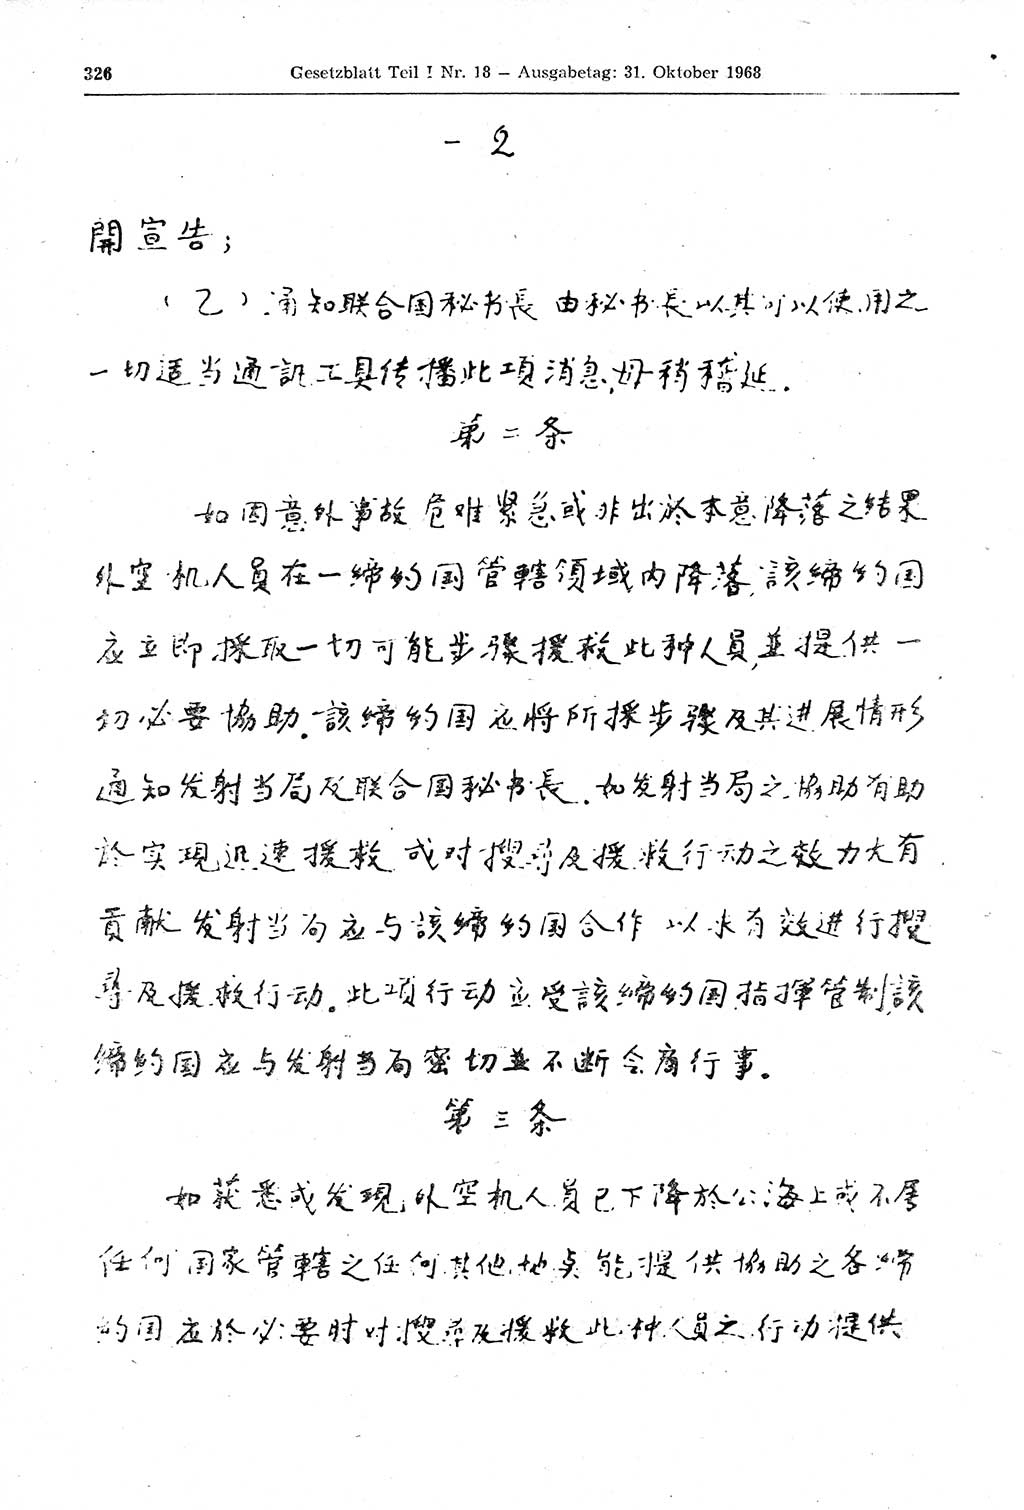 326 Gesetzblatt Teil I Nr. 18 — Ausgabetag: 31. Oktober 1968
— 2
開宣告；
（乙）通知联合国秘书長 由秘书長以其可以使用之
一切适当通訊工具传播此項消息,毋稍稽延.
第二条
如因意外事故危难緊急或非出於本意降落之结果
外空机人員在一締约国管轄領域内降落,該締约国
应立即採取一切可能步骤援救此种人員,並提供一
切必要協助.該締约国应将所採步骤及其进展情形
通知发射当局及联合国秘书長.如发射当局之協助有助
於实現迅速援救 或对搜尋及援救行动之效力大有
貢献 发射当局应与該締约国合作 以求有效进行搜
尋及援救行动.此項行动应受該締约国指揮管制,該
締約国应与发射当局密切並不断会商行事。
第三条
如获悉或发現外空机人員已下降於公海上或不属
任何国家管轄之任何其他地点 能提供協助之各締
约国应於必要时对搜尋及援救此种人員之行动提供